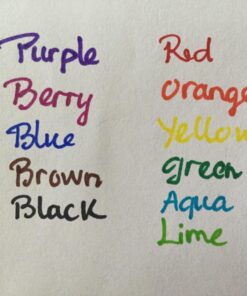 Purple
Berry
Blue
Brown
Black
Red
Orange
Yellow
green
Aqua
Lime